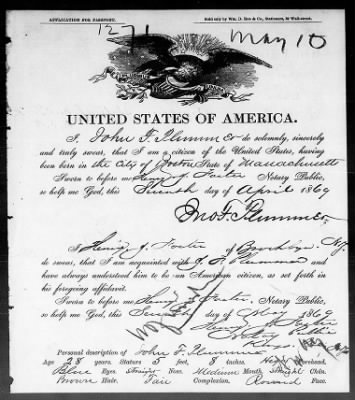 APPLICATION FOR PASSPORT.
Sold only by Wm. D. Roe & Co., Stationers, 82 Wall-street.
1271 May 10
UNITED STATES OF AMERICA.
I, John F. Plummer do solemnly, sincerely
and truly swear, that I am a citizen of the United States, having
been born in the City of Boston State of Massachusetts
Sworn to before me Henry J. Foster Notary Public,
so help me God, this Seventh day of April 1869
Jno F. Plummer
I Henry J. Foster of Brooklyn N.Y.
do swear, that I am acquainted with J. F. Plummer and
have always understood him to be an American citizen, as set forth in
his foregoing affidavit.
Sworn to before me Henry J. Foster, Notary Public,
so help me God, this Seventh day of May 1869
Notary Public
Kings
Personal description of John F. Plummer
Age 28 years. Stature 5 feet, 8 inches. Head
Blue Eyes. Straight Nose. Medium Mouth. Straight Chin.
Brown Hair. Fair Complexion. Round Face.